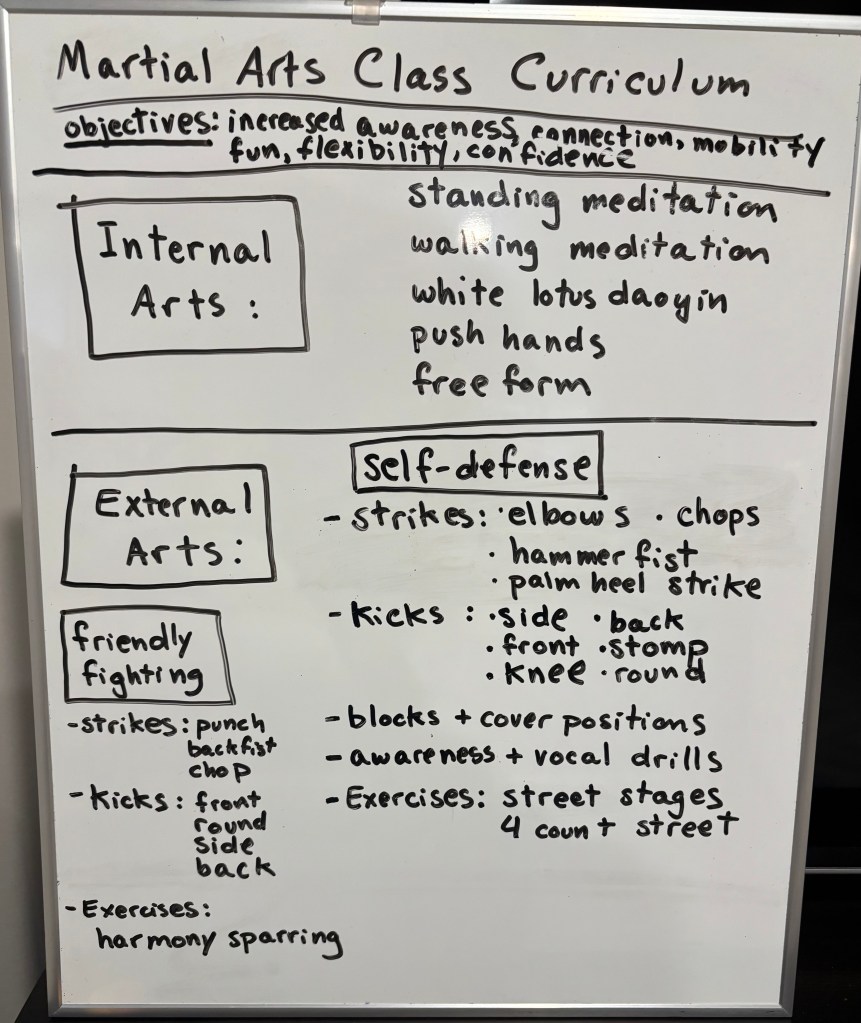 Martial Arts Class Curriculum
objectives: increased awareness, connection, mobility
fun, flexibility, confidence
Internal
Arts :
standing meditation
walking meditation
white lotus daoyin
push hands
free form
External
Arts:
friendly
fighting
-strikes: punch
backfist
chop
-Kicks: front
round
side
back
-Exercises:
harmony sparring
self-defense
- strikes: · elbows · chops
· hammer fist
· palm heel strike
- Kicks : · side · back
· front · stomp
· Knee · round
- blocks + cover positions
- awareness + vocal drills
- Exercises: street stages
4 count street